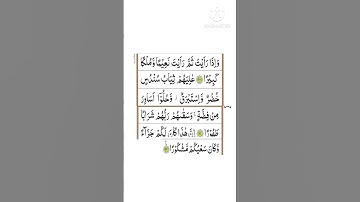 وَاِذَا رَاَيْتَ ثَمَّ رَاَيْتَ نَعِيْمًا وَّمُلْكًا
كَبِيْرًا ۝ عٰلِيَهُمْ ثِيَابُ سُنْدُسٍ
خُضْرٌ وَّاِسْتَبْرَقٌ ؗ وَّحُلُّوْۤا اَسَاوِرَ
مِنْ فِضَّةٍ ۚ وَسَقٰىهُمْ رَبُّهُمْ شَرَابًا
طَهُوْرًا ۝ اِنَّ هٰذَا كَانَ لَكُمْ جَزَآءً
وَّكَانَ سَعْيُكُمْ مَّشْكُوْرًا ۝